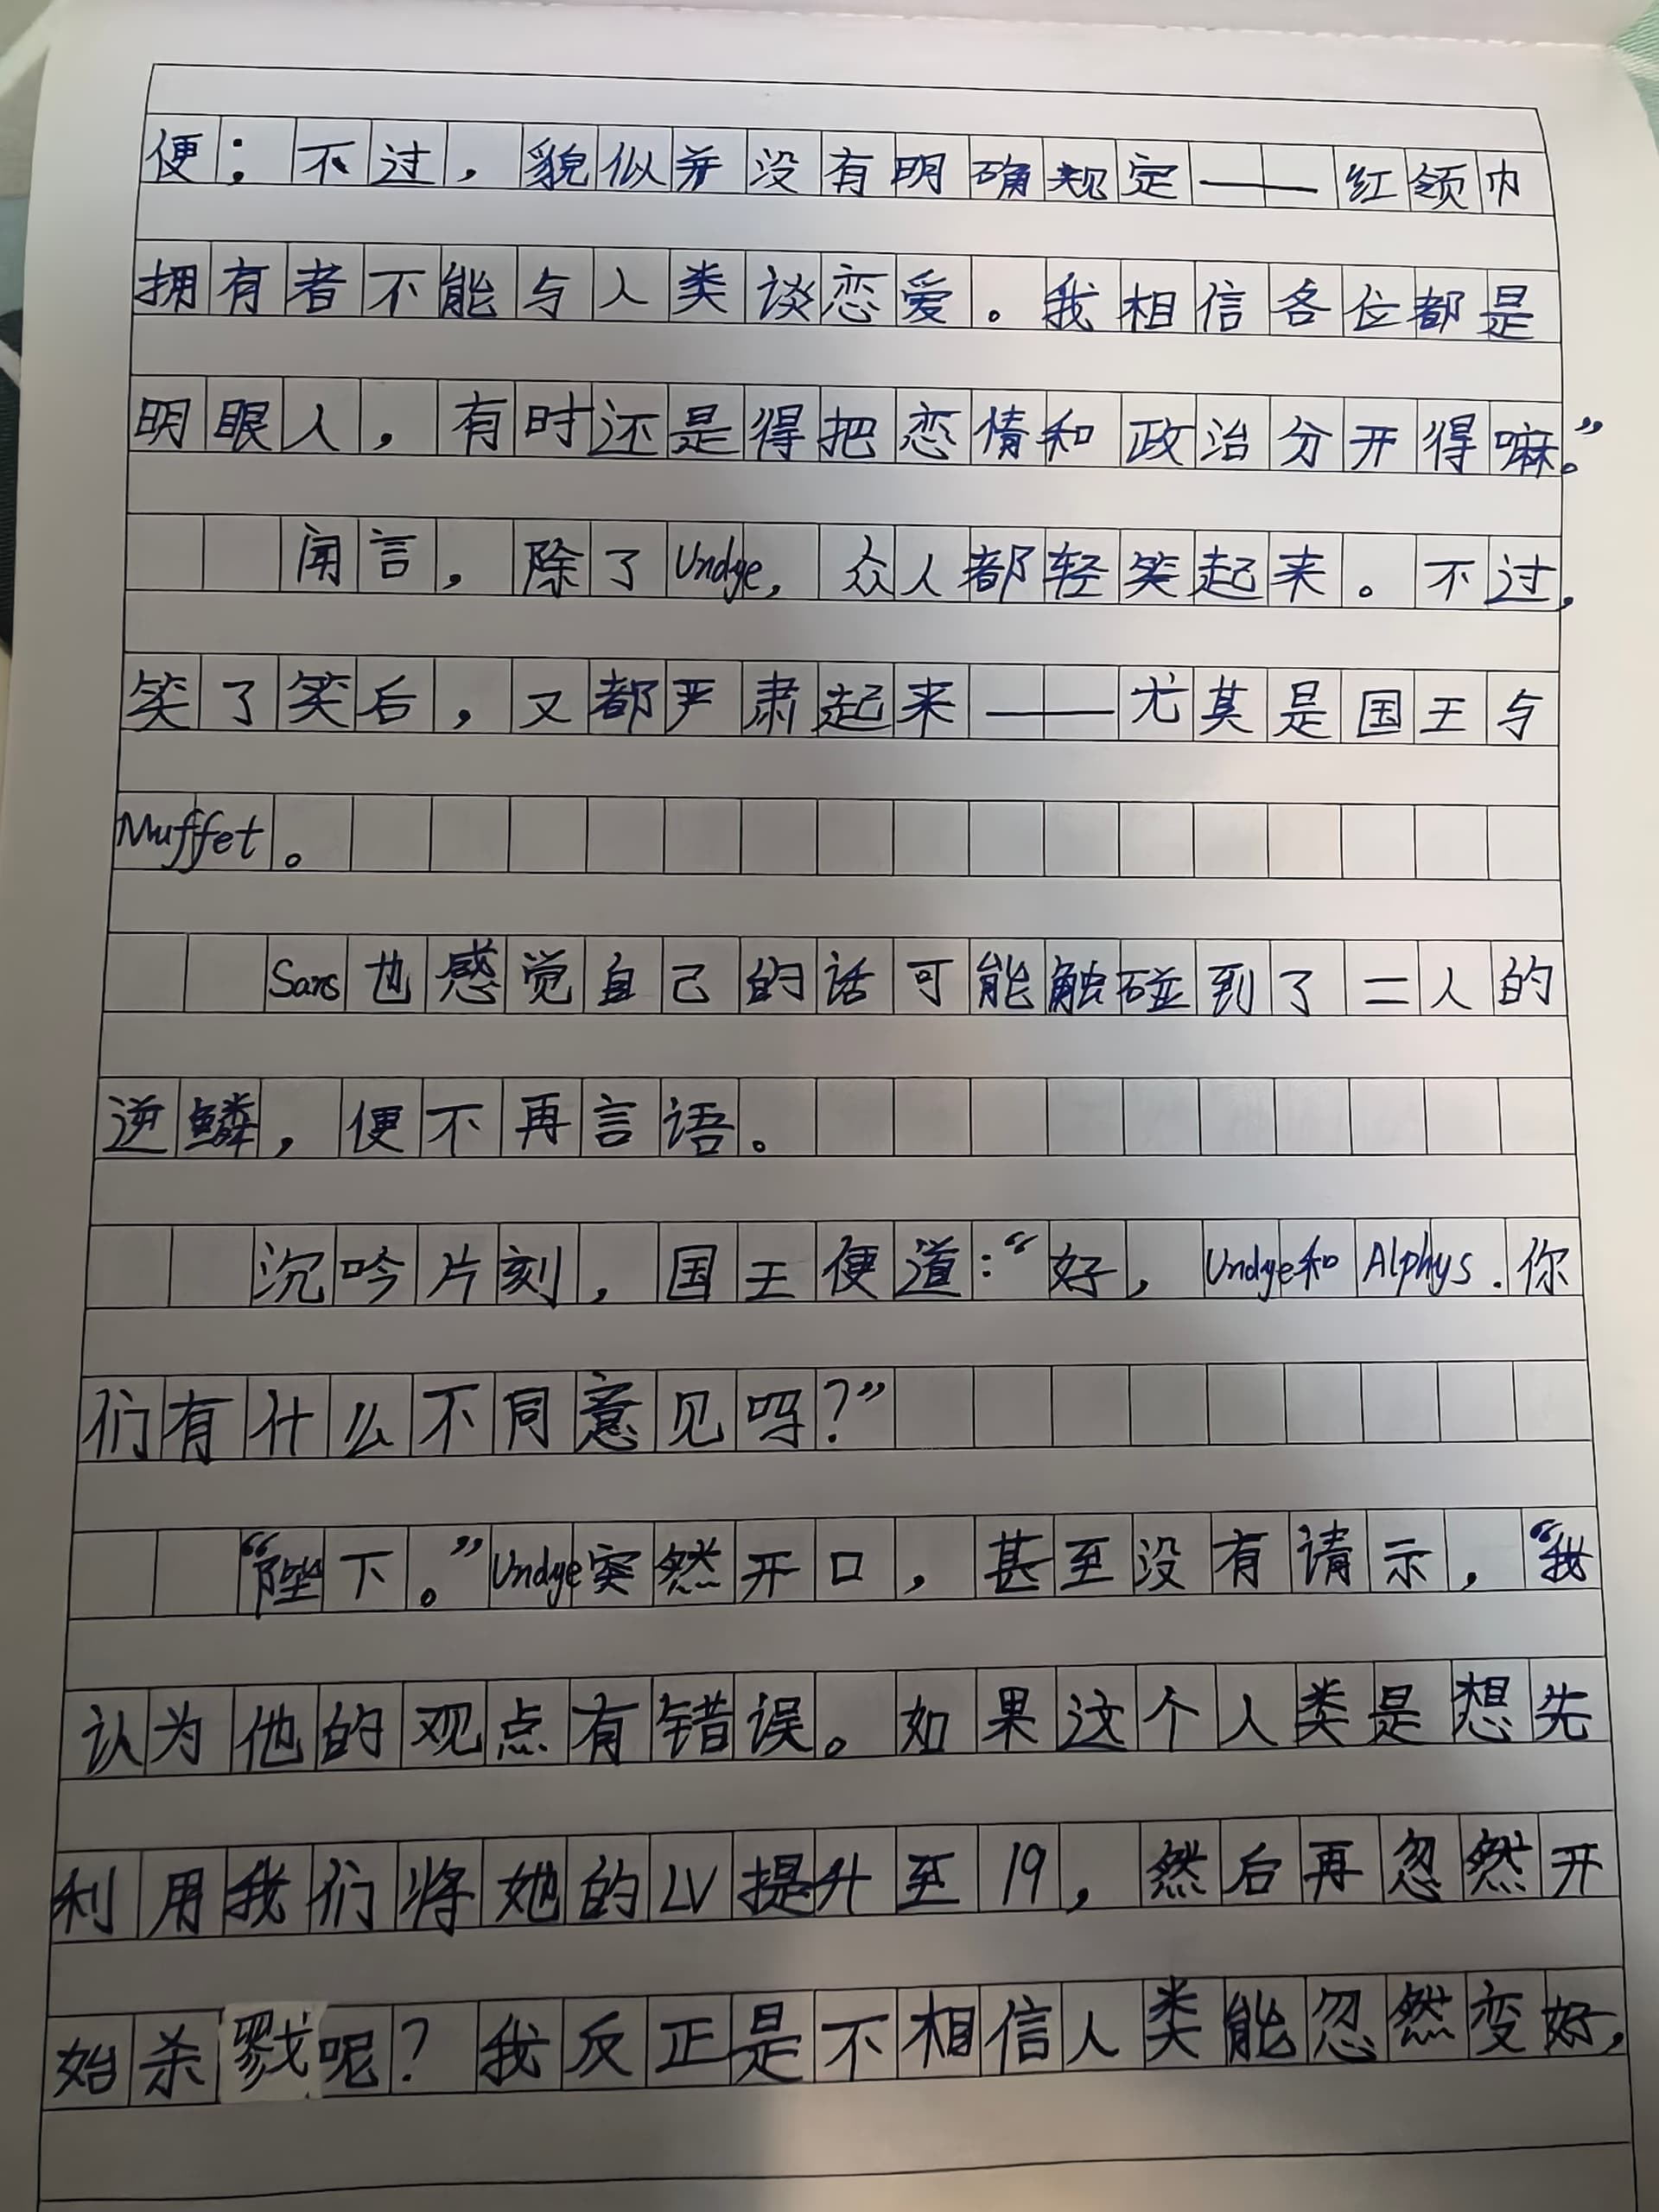 便；不过，貌似并没有明确规定——红领巾
拥有者不能与人类谈恋爱。我相信各位都是
明眼人，有时还是得把恋情和政治分开得嘛。”
闻言，除了Undye，众人都轻笑起来。不过，
笑了笑后，又都严肃起来——尤其是国王与
Muffet。
Sans也感觉自己的话可能触碰到了二人的
逆鳞，便不再言语。
沉吟片刻，国王便道：“好，Undye和Alphys.你
们有什么不同意见吗？”
“陛下。”Undye突然开口，甚至没有请示，“我
认为他的观点有错误。如果这个人类是想先
利用我们将她的LV提升至19，然后再忽然开
始杀戮呢？我反正是不相信人类能忽然变好，